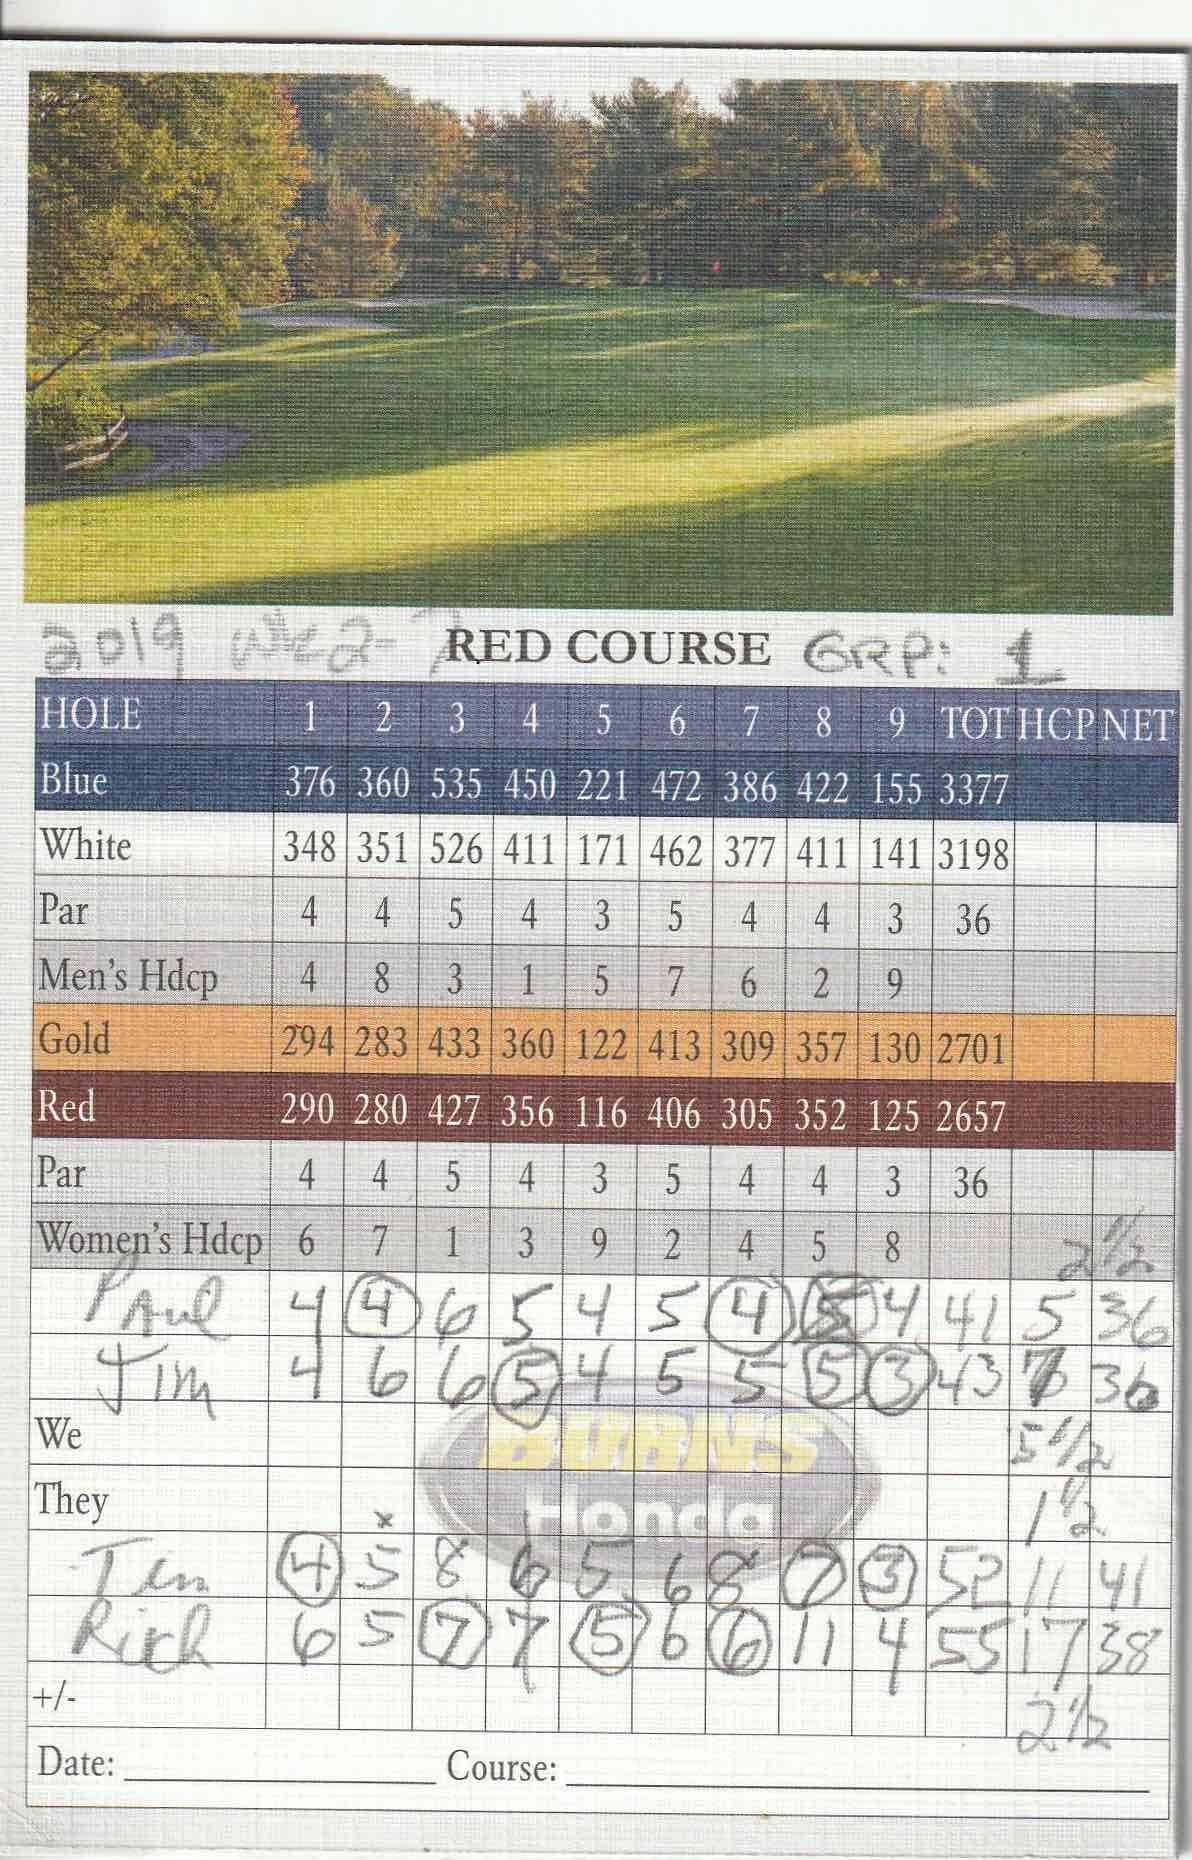 2019 WK2- 7 RED COURSE GRP: 1
HOLE 1 2 3 4 5 6 7 8 9 TOT HCP NET
Blue 376 360 535 450 221 472 386 422 155 3377
White 348 351 526 411 171 462 377 411 141 3198
Par 4 4 5 4 3 5 4 4 3 36
Men's Hdcp 4 8 3 1 5 7 6 2 9
Gold 294 283 433 360 122 413 309 357 130 2701
Red 290 280 427 356 116 406 305 352 125 2657
Par 4 4 5 4 3 5 4 4 3 36
Women's Hdcp 6 7 1 3 9 2 4 5 8 2 1/2
PAul 4 4 6 5 4 5 4 5 4 41 5 36
Jim 4 6 6 5 4 5 5 5 3 43 36
BURNS
We 5 1/2
Honda
They 1 1/2
x
Tim 4 5 8 6 5 6 8 7 3 52 11 41
Rich 6 5 7 7 5 6 6 11 4 55 17 38
+/- 2 1/2
Date: Course: